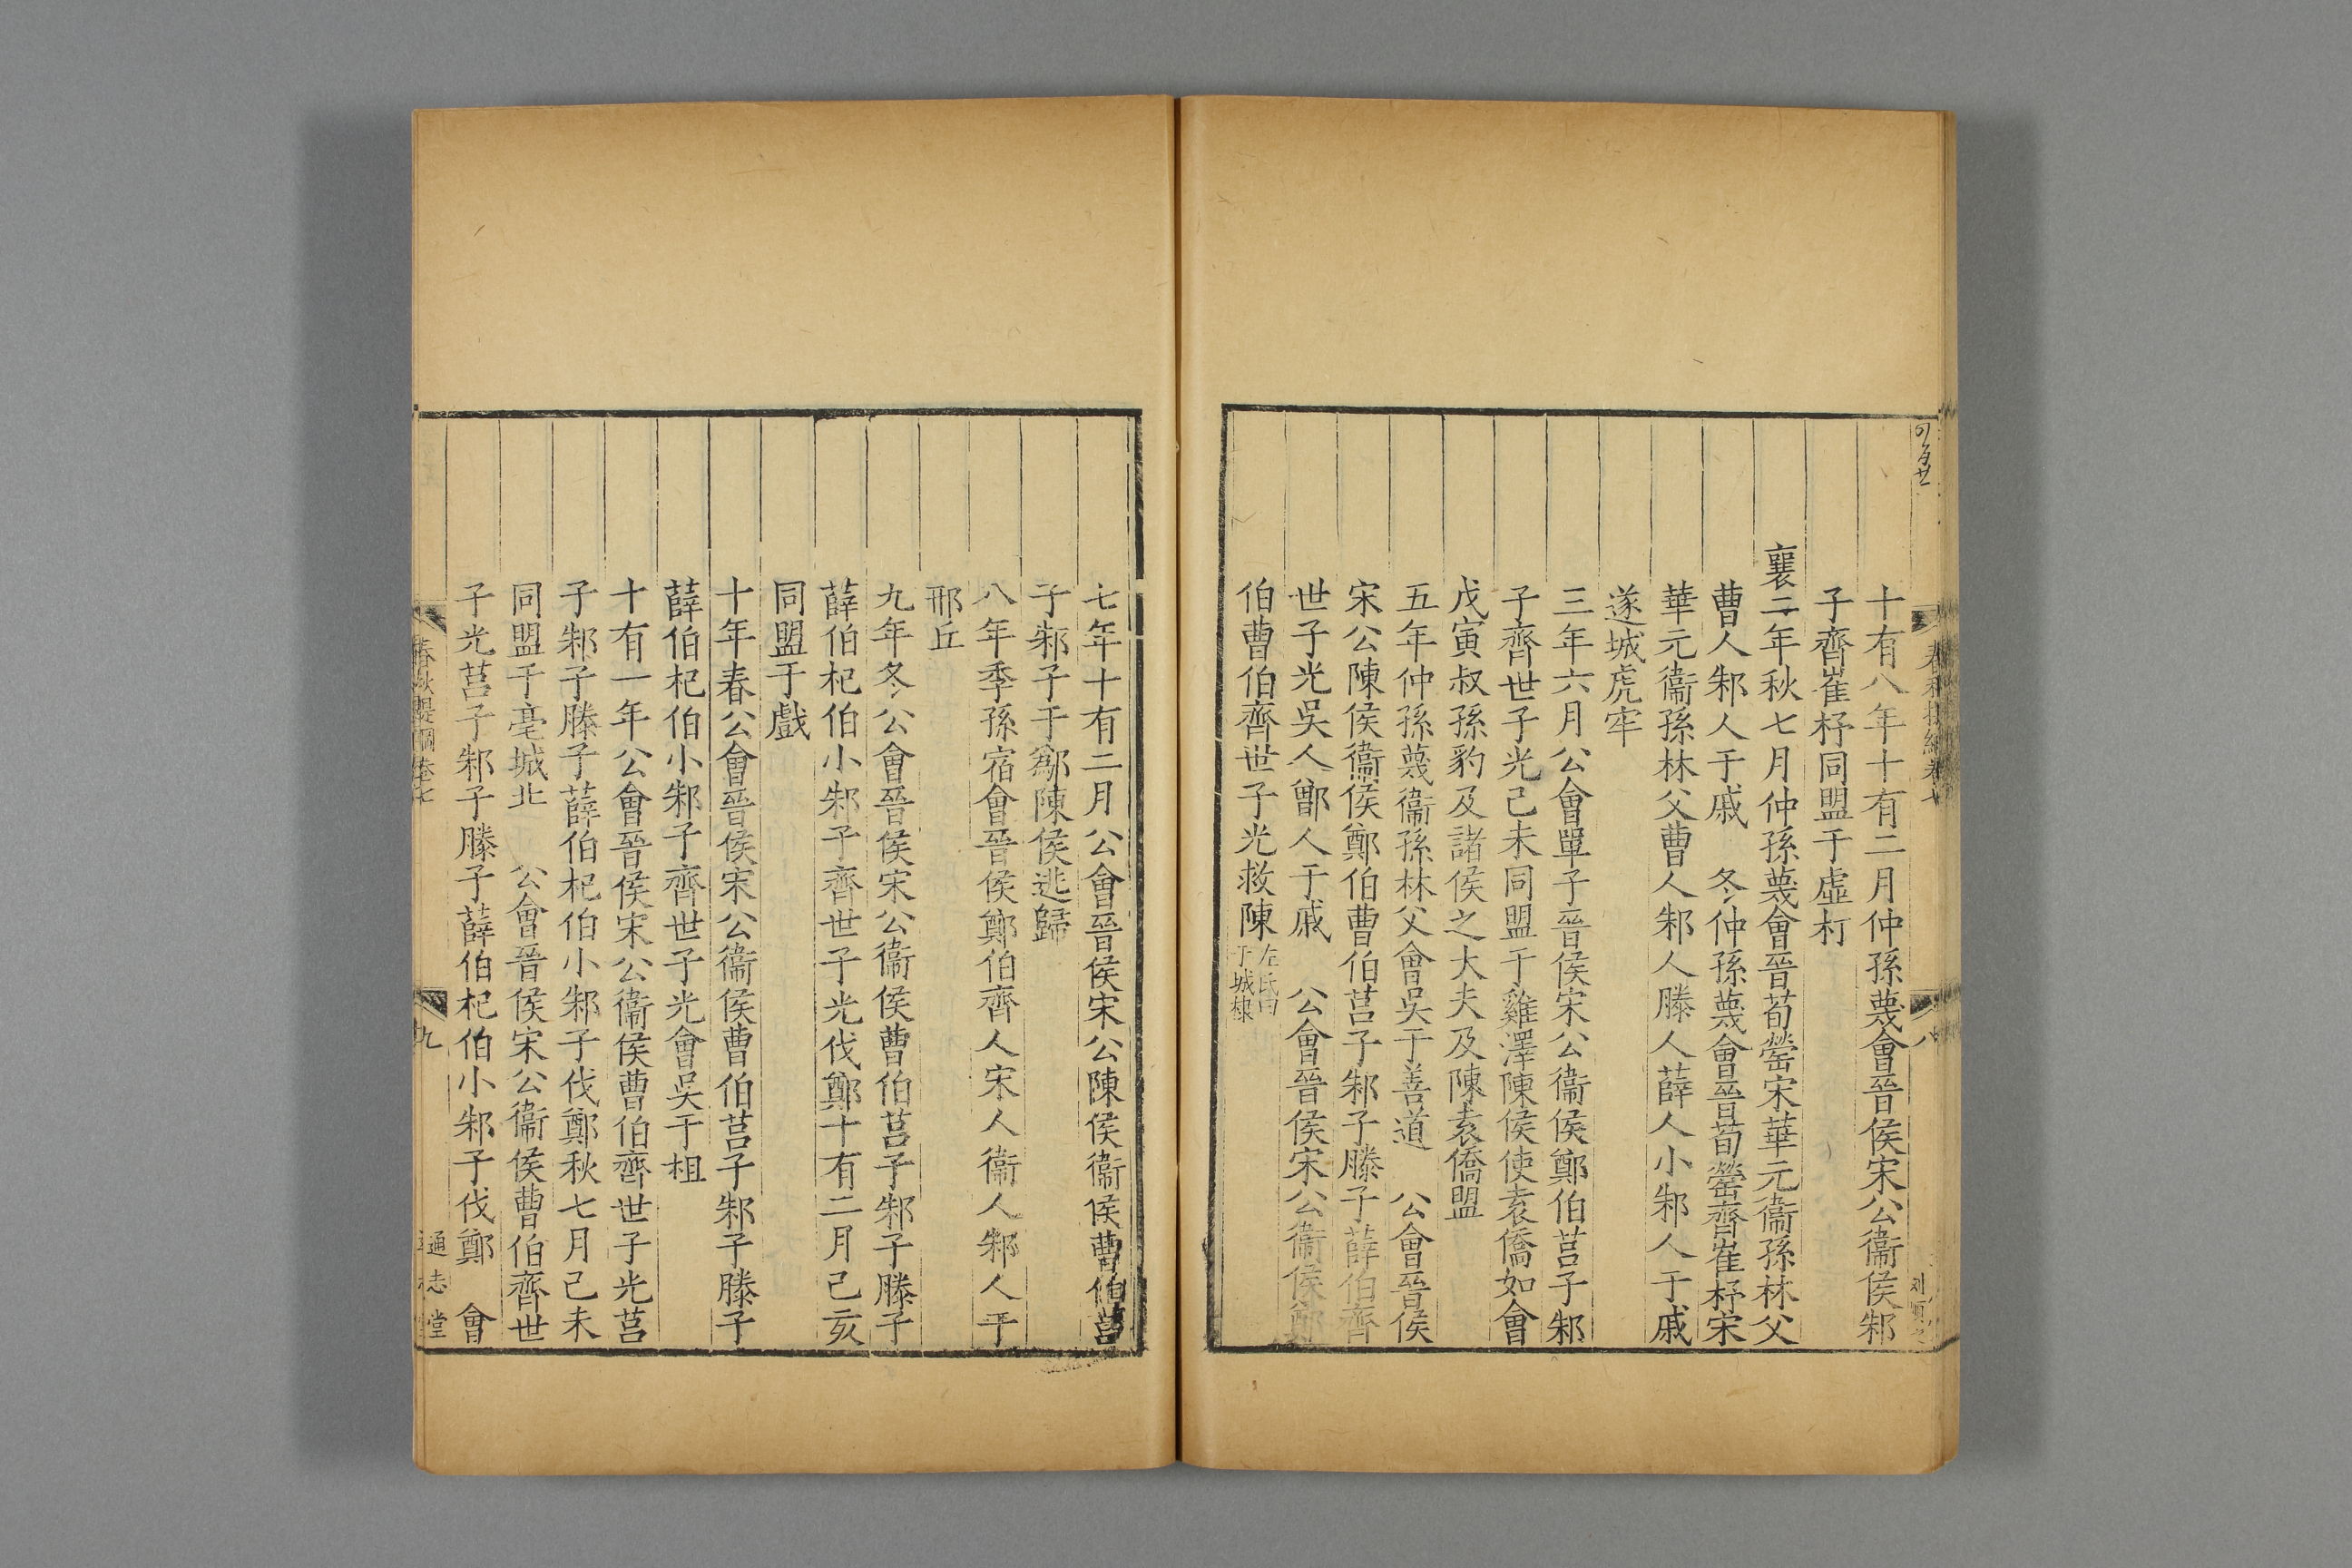 十有八年十有二月仲孫蔑會晉侯宋公衞侯邾
子齊崔杼同盟于虛朾
襄二年秋七月仲孫蔑會晉荀罃宋華元衞孫林父
曹人邾人于戚　冬仲孫蔑會晉荀罃齊崔杼宋
華元衞孫林父曹人邾人滕人薛人小邾人于戚
遂城虎牢
三年六月公會單子晉侯宋公衞侯鄭伯莒子邾
子齊世子光己未同盟于雞澤陳侯使袁僑如會
戊寅叔孫豹及諸侯之大夫及陳袁僑盟
五年仲孫蔑衞孫林父會吳于善道　公會晉侯
宋公陳侯衞侯鄭伯曹伯莒子邾子滕子薛伯齊
世子光吳人鄫人于戚　公會晉侯宋公衞侯鄭
伯曹伯齊世子光救陳左氏曰
于城棣
七年十有二月公會晉侯宋公陳侯衞侯曹伯莒
子邾子于鄬陳侯逃歸
八年季孫宿會晉侯鄭伯齊人宋人衞人邾人于
邢丘
九年冬公會晉侯宋公衞侯曹伯莒子邾子滕子
薛伯杞伯小邾子齊世子光伐鄭十有二月己亥
同盟于戲
十年春公會晉侯宋公衞侯曹伯莒子邾子滕子
薛伯杞伯小邾子齊世子光會吳于柤
十有一年公會晉侯宋公衞侯曹伯齊世子光莒
子邾子滕子薛伯杞伯小邾子伐鄭秋七月己未
同盟于亳城北　公會晉侯宋公衞侯曹伯齊世
子光莒子邾子滕子薛伯杞伯小邾子伐鄭　會
春秋提綱卷七
九
通志堂